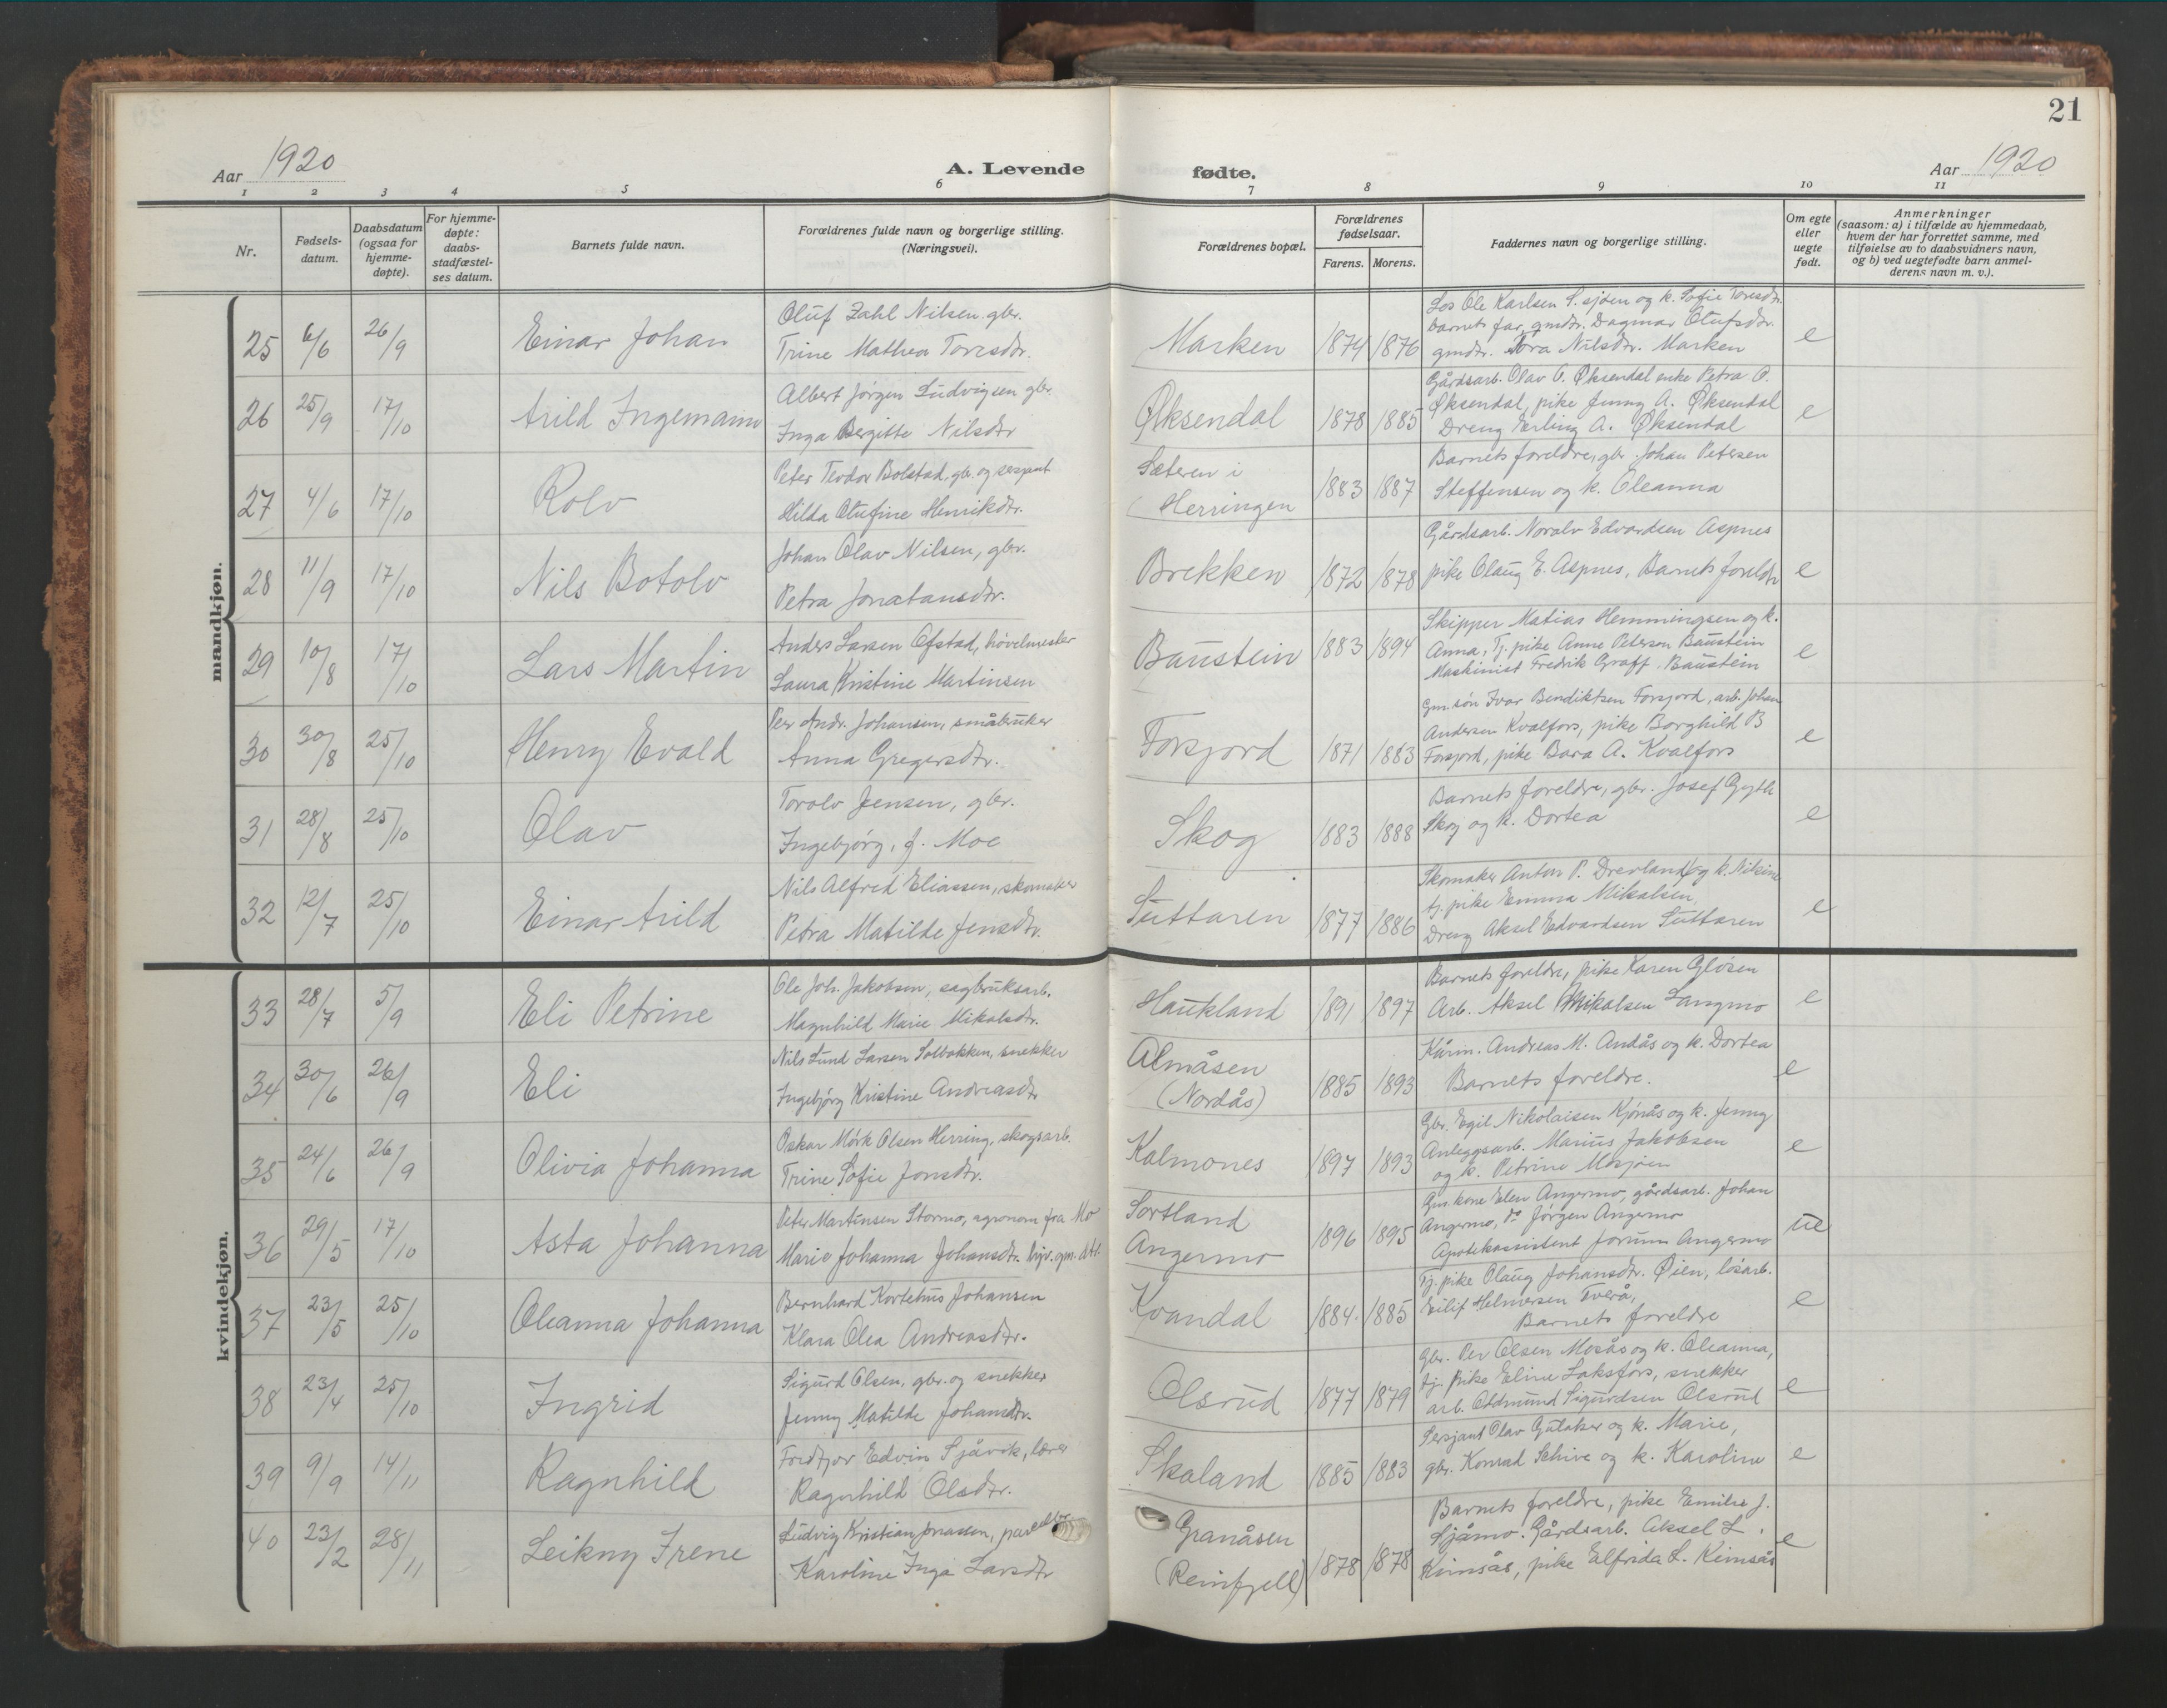 21
Aar 1920
A. Levende fødte.
Aar 1920
1 2 3 4 5 6 7 8 9 10 11
Nr.
Fødsels-
datum.
Daabsdatum
(ogsaa for
hjemme-
døpte).
For hjemme-
døpte:
daabs-
stadfæstel-
ses datum.
Barnets fulde navn.
Forældrenes fulde navn og borgerlige stilling.
(Næringsvei).
Forældrenes bopæl.
Forældrenes
fødselsaar.
Farens. Morens.
Faddernes navn og borgerlige stilling.
Om egte
eller
uegte
født.
Anmerkninger
(saasom: a) i tilfælde av hjemmedaab,
hvem der har forrettet samme, med
tilføielse av to daabsvidners navn,
og b) ved uegtefødte barn anmel-
derens navn m. v.).
mandkjøn.
25 6/6 26/9 Einar Johan
Oluf Zahl Nilsen gbr.
Trine Mathea Toresdtr.
Marken 1874 1876
Los Ole Karlsen S.sjøen og k. Sofie Toresdtr.
barnets far, gmdtr. Dagmar Olufsdtr.
gmdtr. Tora Nilsdtr. Marken
e
26 25/9 17/10 Arild Ingemann
Albert Jørgen Ludvigsen gbr.
Inga Bergitte Nilsdtr
Øksendal 1878 1885
Gårdsarb. Olav O. Øksendal enke Petra P.
Øksendal, pike Jenny A. Øksendal
Dreng Erling A. Øksendal
e
27 4/6 17/10 Rolv
Peter Teodor Bolstad, gbr. og sersjant
Hilda Olufine Henriksdtr.
Sæteren i
Herringen
1883 1887
Barnets foreldre, gbr. Johan Petersen
Steffensen og k. Oleanna
28 11/9 17/10 Nils Botolv
Johan Olav Nilsen, gbr.
Petra Jonatansdtr.
Brekken 1872 1878
Gårdsarb. Noralv Edvardsen Aspnes
pike Olaug E. Aspnes, Barnets foreldre
e
29 10/8 17/10 Lars Martin
Anders Larsen Ofstad, høvelmester
Laura Kristine Martinsen
Baustein 1883 1894
Skipper Matias Hemmingsen og k.
Anna, Tj. pike Anne Peterson Baustein
Maskinist Fredrik Graff. Baustein
e
30 30/8 25/10 Henry Evald
Peer Andr. Johansen, småbruker
Anna Gregersdtr.
Forsjord 1871 1883
Gm.søn Ivar Bendiktsen Forsjord, arb. Johan
Andersen Kvalfors, pike Borghild B
Forsjord, pike Bara A. Kvalfors
e
31 28/8 25/10 Olav
Torolv Jensen, gbr.
Ingebjørg, f. Moe
Skog 1883 1888
Barnets foreldre, gbr. Josef
Skog og k. Dortea
e
32 12/7 25/10 Einar Arild
Nils Alfred Eliassen, skomaker
Petra Matilde Jensdtr.
Luttaren 1877 1886
Skomaker Anton P. Drevland og k. Nilsine
tj. pike Emma Mikalsen,
Dreng Aksel Edvardsen Luttaren
e
kvindekjøn.
33 28/7 5/9 Eli Petrine
Ole Joh. Jakobsen, sagbruksarb.
Magnhild Marie Mikalsdtr.
Haukland 1891 1897
Barnets foreldre, pike Karen Gløsen
Arb. Aksel Mikalsen Langmo
e
34 30/6 26/9 Eli
Nils Lund Larsen Solbakken, snekker
Ingebjørg Kristine Andreasdtr
Almåsen
(Nordås)
1885 1893
Kårm. Andreas M. Andås og k. Dortea
Barnets foreldre.
e
35 24/6 26/9 Olivia Johanna
Oskar Mørk Olsen Herring, skogsarb.
Trine Sofie Jonsdtr.
Kalmones 1897 1893
Gbr. Egil Nikolaisen Kjønås og k. Jenny
Anleggsarb. Marius Jakobsen
og k. Petrine Mosjøen
e
36 29/5 17/10 Asta Johanna
Peter Martinsen Stormo, agronom fra Mo
Marie Johanna Johansdtr. hjv. gm. dtr.
Sortland
Angermo
1896 1895
Gm. kone Elen Angermo, gårdsarb. Johan
Angermo, do Jørgen Angermo
Apotekassistent Jorunn Angermo
ue
37 23/5 25/10 Oleanna Johanna
Bernhard Kortetus Johansen
Klara Olea Andreasdtr.
Kvandal 1884 1885
Tj. pike Olaug Johansdtr. Øien, løsarb.
Eilif Helmersen Tverå,
Barnets foreldre
e
38 23/4 25/10 Ingrid
Sigurd Olsen, gbr. og snekker
Jenny Matilde Johansdtr.
Olsrud 1877 1879
Gbr. Per Olsen Mosås og k. Oleanna,
tj. pike Eline Laksfors, snekker
arb. Oddmund Sigurdsen Olsrud
e
39 9/9 14/11 Ragnhild
Fredtjov Edvin Sjåvik, lærer
Ragnhild Olsdtr.
Skaland 1885 1883
Sersjant Olav Gutaker og k. Marie,
gbr. Konrad Schive og k. Karoline
e
40 23/2 28/11 Leikny Irene
Ludvig Kristian Jonassen,
Karoline Inga Larsdtr
Granåsen
(Reinfjell)
1878 1878
Barnets foreldre, pike Emilie J.
Sjåmo. Gårdsarb. Aksel L.
Kimsås, pike Elfrida L. Kimsås
e